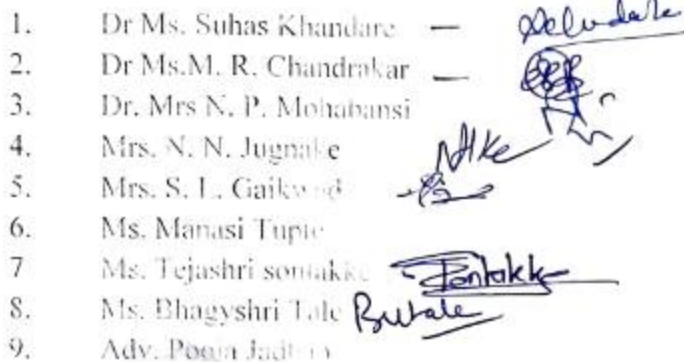 1. Dr Ms. Suhas Khandare —
2. Dr Ms.M. R. Chandrakar —
3. Dr. Mrs N. P. Mohabansi
4. Mrs. N. N. Jugnake
5. Mrs. S. L. Gaikwad
6. Ms. Manasi Tupte
7 Ms. Tejashri sontakke Sontakke
8. Ms. Bhagyshri Tale
9. Adv. Pooja Jadhav